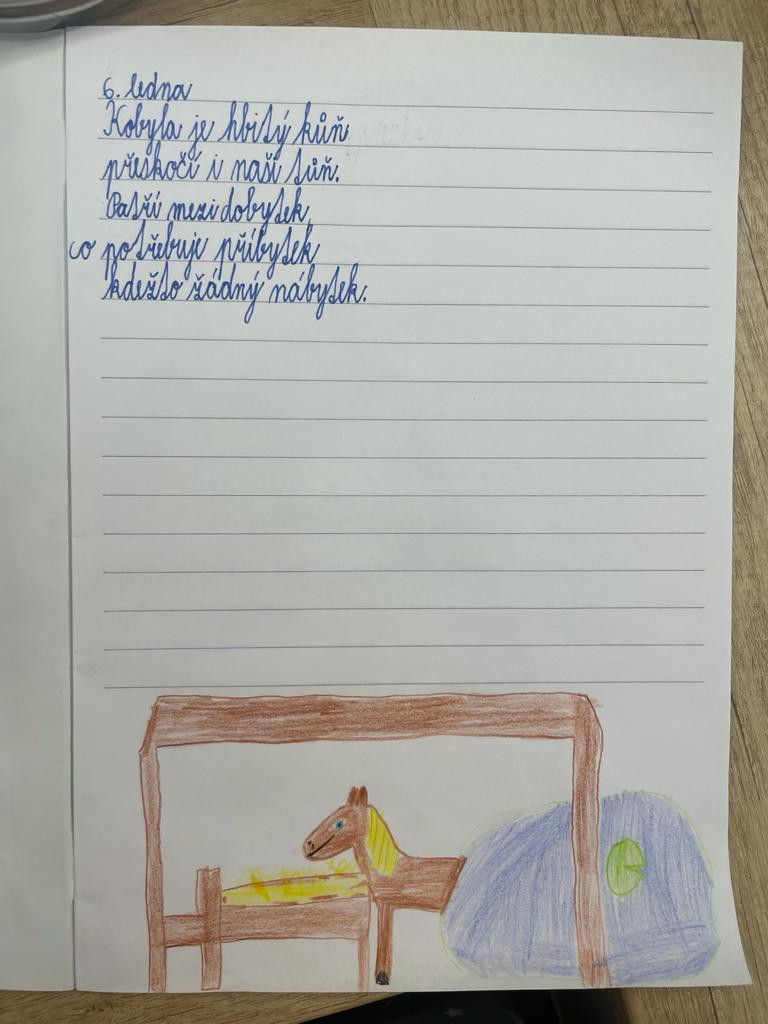 6. ledna
Kobyla je hbitý kůň
přeskočí i naši tůň.
Patří mezi dobytek,
co potřebuje příbytek
kdežto žádný nábytek.